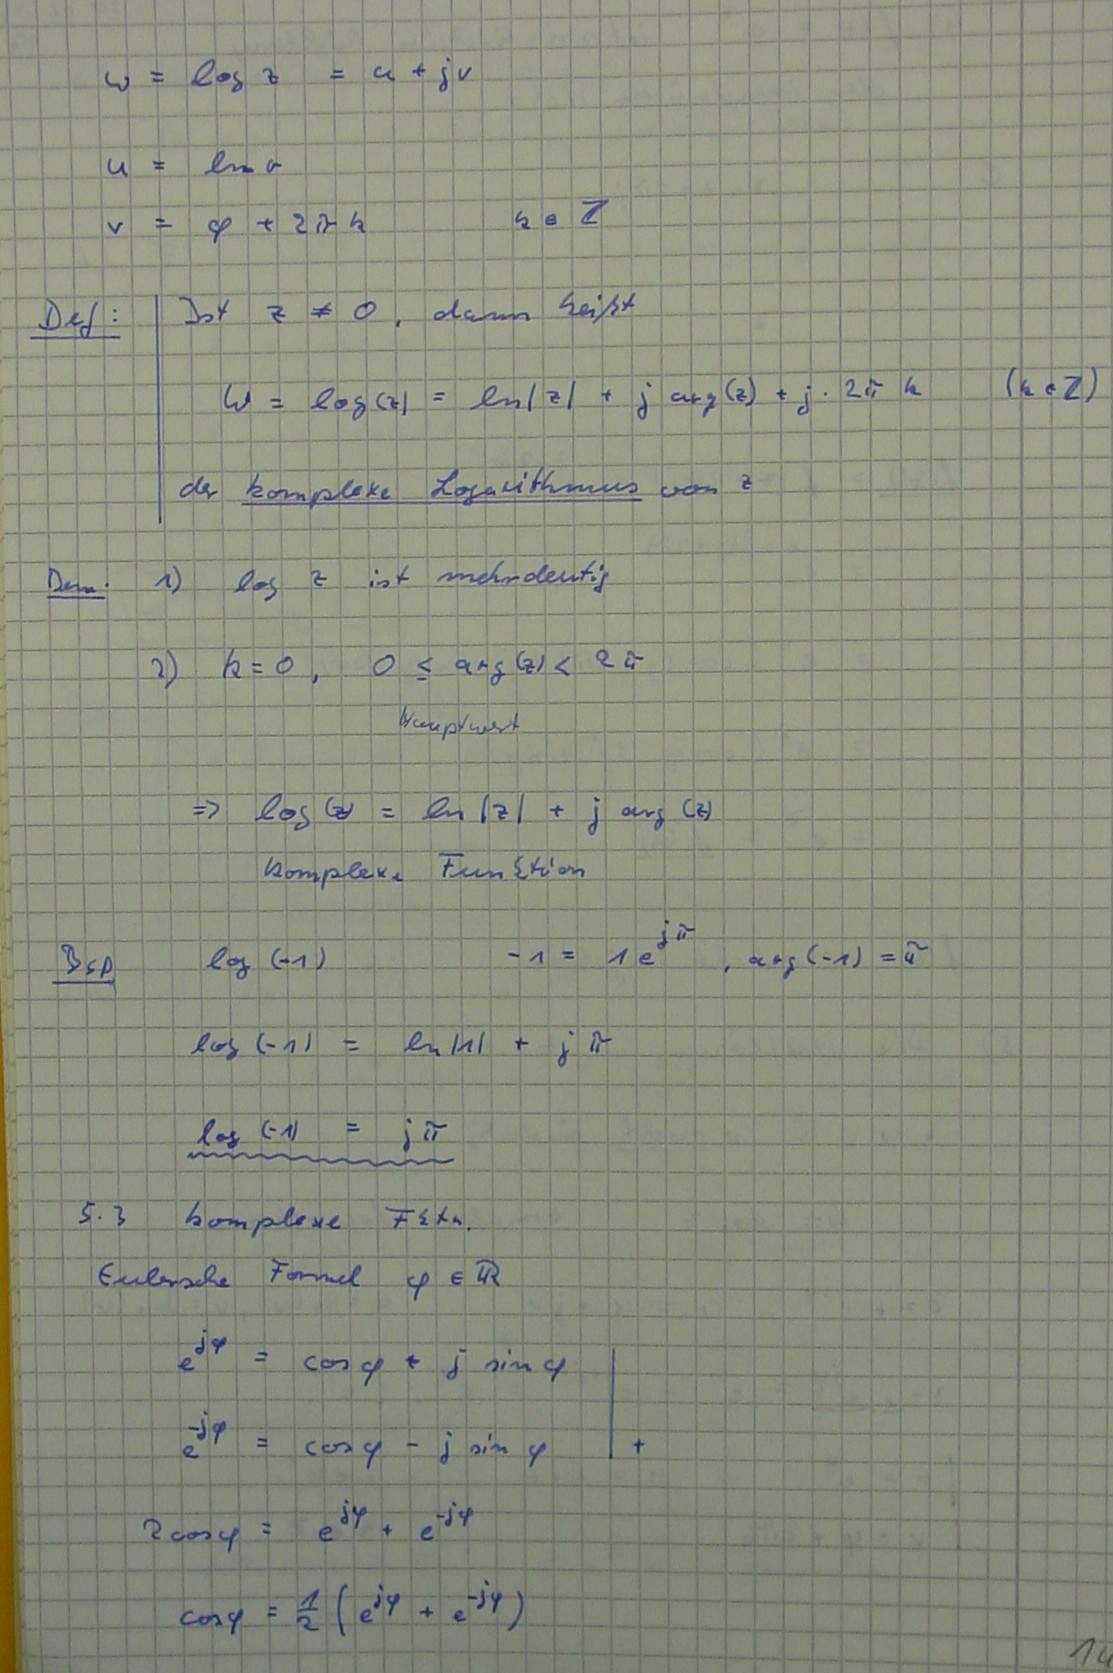 w = log z = u + jv
u = ln r
v = φ + 2πk k ∈ ℤ
Def: Ist z ≠ 0, dann heißt
w = log(z) = ln|z| + j arg(z) + j · 2π k (k ∈ ℤ)
der komplexe Logarithmus von z
Bem: 1) log z ist mehrdeutig
2) k = 0, 0 ≤ arg(z) < 2π
Hauptwert
=> log(z) = ln|z| + j arg(z)
komplexe Funktion
Bsp log(-1) -1 = 1 e^{jπ}, arg(-1) = π
log(-1) = ln|1| + jπ
log(-1) = jπ
5.3 komplexe Fktn.
Eulersche Formel φ ∈ ℝ
e^{jφ} = cosφ + j sinφ
e^{-jφ} = cosφ - j sinφ | +
2cosφ = e^{jφ} + e^{-jφ}
cosφ = 1/2 (e^{jφ} + e^{-jφ})